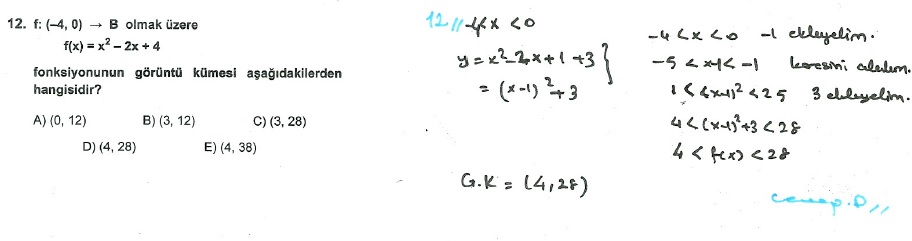 12. f: (–4, 0) → B olmak üzere
f(x) = x² – 2x + 4
fonksiyonunun görüntü kümesi aşağıdakilerden
hangisidir?
A) (0, 12) B) (3, 12) C) (3, 28)
D) (4, 28) E) (4, 38)
12// -4<x<0
y = x²-2x+1+3}
= (x-1)²+3
G.K = (4,28)
-4<x<0 -1 ekleyelim.
-5<x-1<-1 karesini alalım.
1<(x-1)²<25 3 ekleyelim.
4<(x-1)²+3<28
4<f(x)<28
cevap.D//